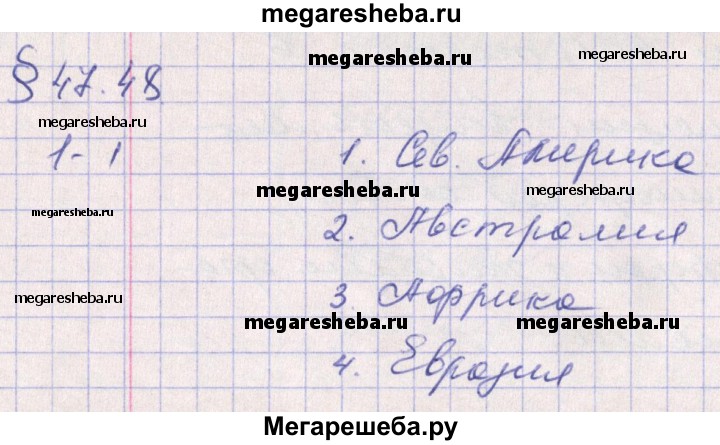 megaresheba.ru
megaresheba.ru
megaresheba.ru
§ 47.48
megaresheba.ru
1-1 1. Сев. Америка
megaresheba.ru
megaresheba.ru
megaresheba.ru
2. Австралия
3. Африка
megaresheba.ru
megaresheba.ru
megaresheba.ru
4. Евразия
Мегарешеба.ру